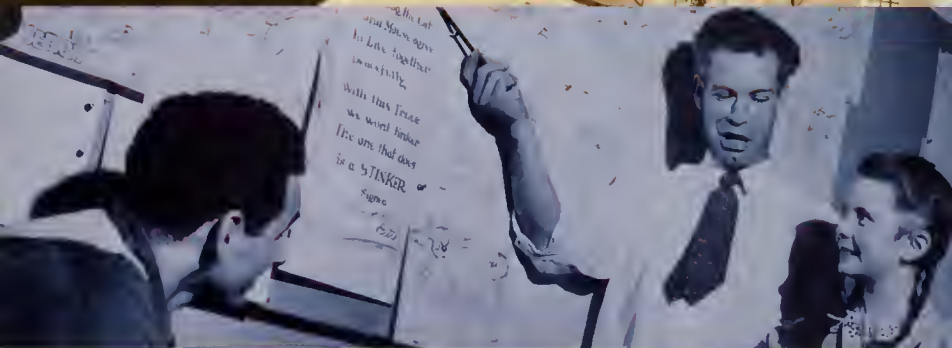 the Cat
and Mouse agree
to Live together
peacefully.
With this Truce
we wont tinker
The one that does
is a STINKER
Signed